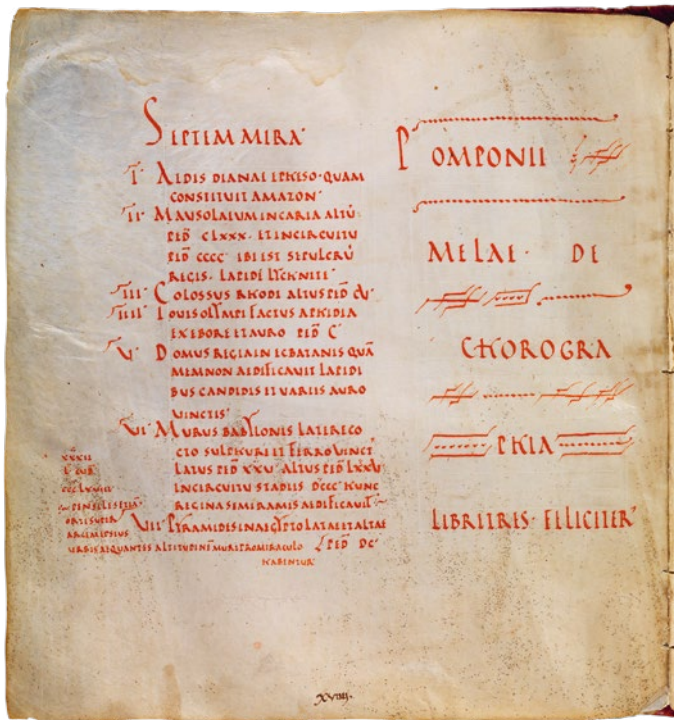 SEPTEM MIRA
I· AEDIS DIANAE EPHESO· QUAM
CONSTITUIT AMAZON·
II· MAUSOLAEUM IN CARIA ALTŪ·
PED̄ CLXXX· ET IN CIRCUITU
PED̄ CCCC· IBI EST SEPULCRŪ
REGIS· LAPIDE LYCHNITE·
III· COLOSSUS RHODI ALTUS PED̄ CV·
IIII· IOUIS OLYMPI FACTUS A PHIDIA
EX EBORE ET AURO PED̄ C
V· DOMUS REGIA IN ECBATANIS QUĀ
MEMNON AEDIFICAVIT LAPIDI
BUS CANDIDIS ET VARIIS AURO
UINCTIS·
VI· MURUS BABYLONIS LATERE CO
CTO SULPHURE ET FERRO UINCT
LATUS PED̄ XXV ALTUS PED̄ LXXV
IN CIRCUITU STADIIS HUNC
REGINA SEMIRAMIS AEDIFICAUIT
VII· PYRAMIDES IN AEGYPTO LATAE ET ALTAE
PED̄ DC·
XXXII
L CUB
CCCLXVIII
PENSILES ETIĀ
ORTI SUPER
ARCEM IPSIUS
URBIS AEQUANTES ALTITUDINĒ MURI PRO MIRACULO
HABENTUR
POMPONII
MELAE· DE
CHOROGRA
PHIA
LIBRI TRES· FELICITER
XVIIII·